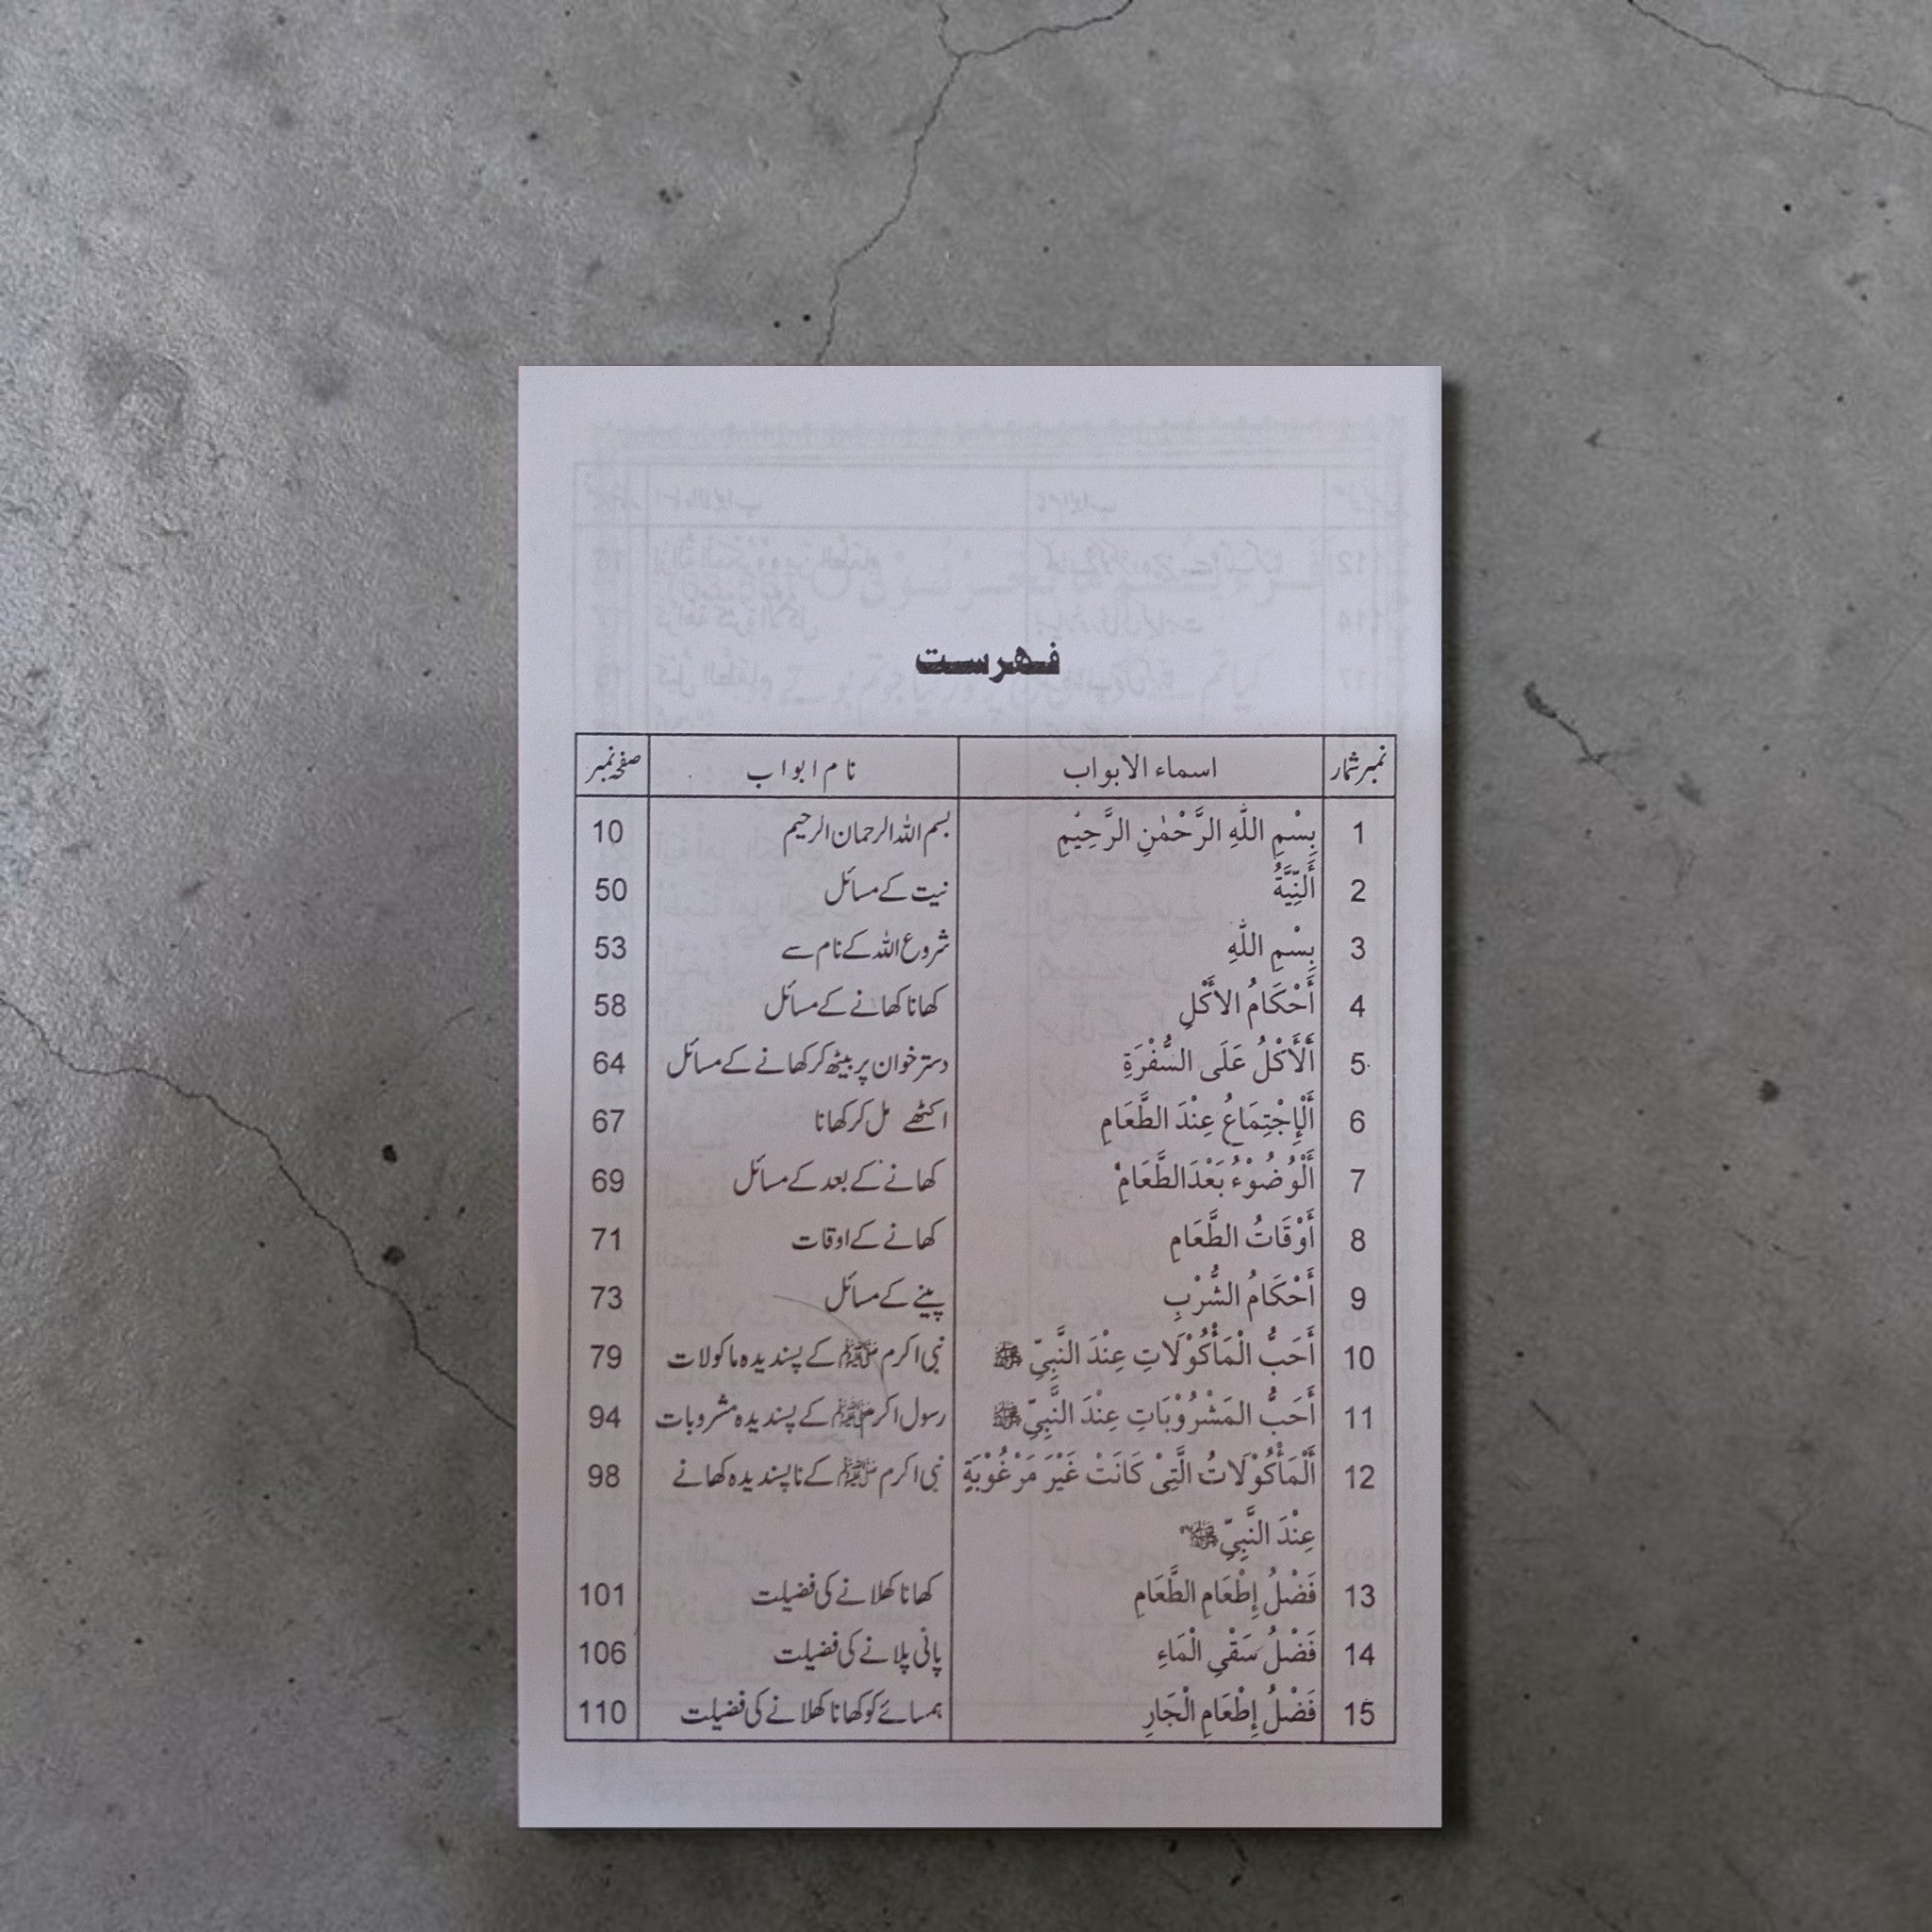 فہرست
نمبر شمار اسماء الابواب نام ابواب صفحہ نمبر
1 بِسْمِ اللّٰهِ الرَّحْمٰنِ الرَّحِيْمِ بسم اللہ الرحمان الرحیم 10
2 أَلنِّيَّةُ نیت کے مسائل 50
3 بِسْمِ اللّٰهِ شروع اللہ کے نام سے 53
4 أَحْكَامُ الأَكْلِ کھانا کھانے کے مسائل 58
5 أَلْأَكْلُ عَلَى السُّفْرَةِ دسترخوان پر بیٹھ کر کھانے کے مسائل 64
6 أَلْإِجْتِمَاعُ عِنْدَ الطَّعَامِ اکٹھے مل کر کھانا 67
7 أَلْوُضُوْءُ بَعْدَ الطَّعَامِ کھانے کے بعد کے مسائل 69
8 أَوْقَاتُ الطَّعَامِ کھانے کے اوقات 71
9 أَحْكَامُ الشُّرْبِ پینے کے مسائل 73
10 أَحَبُّ الْمَأْكُوْلَاتِ عِنْدَ النَّبِيِّ ﷺ نبی اکرم ﷺ کے پسندیدہ ماکولات 79
11 أَحَبُّ المَشْرُوْبَاتِ عِنْدَ النَّبِيِّ ﷺ رسول اکرم ﷺ کے پسندیدہ مشروبات 94
12 أَلْمَأْكُوْلَاتُ الَّتِىْ كَانَتْ غَيْرَ مَرْغُوْبَةٍ نبی اکرم ﷺ کے ناپسندیدہ کھانے 98
عِنْدَ النَّبِيِّ ﷺ
13 فَضْلُ إِطْعَامِ الطَّعَامِ کھانا کھلانے کی فضیلت 101
14 فَضْلُ سَقْىِ الْمَاءِ پانی پلانے کی فضیلت 106
15 فَضْلُ إِطْعَامِ الْجَارِ ہمسائے کو کھانا کھلانے کی فضیلت 110